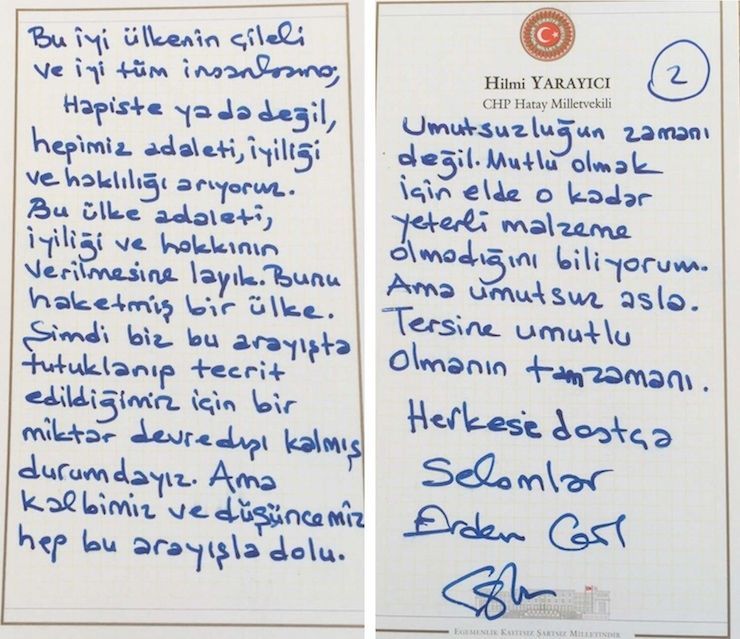 Bu iyi ülkenin çileli
ve iyi tüm insanlarına,
Hapiste ya da değil,
hepimiz adaleti, iyiliği
ve haklılığı arıyoruz.
Bu ülke adaleti,
iyiliği ve hakkının
verilmesine layık. Bunu
haketmiş bir ülke.
Şimdi biz bu arayışta
tutuklanıp tecrit
edildiğimiz için bir
miktar devredışı kalmış
durumdayız. Ama
kalbimiz ve düşüncemiz
hep bu arayışla dolu.
Hilmi YARAYICI
CHP Hatay Milletvekili
2
Umutsuzluğun zamanı
değil. Mutlu olmak
için elde o kadar
yeterli malzeme
olmadığını biliyorum.
Ama umutsuz asla.
Tersine umutlu
olmanın tam zamanı.
Herkese dostça
Selamlar
Erdem Gül
EGEMENLİK KAYITSIZ ŞARTSIZ MİLLETİNDİR